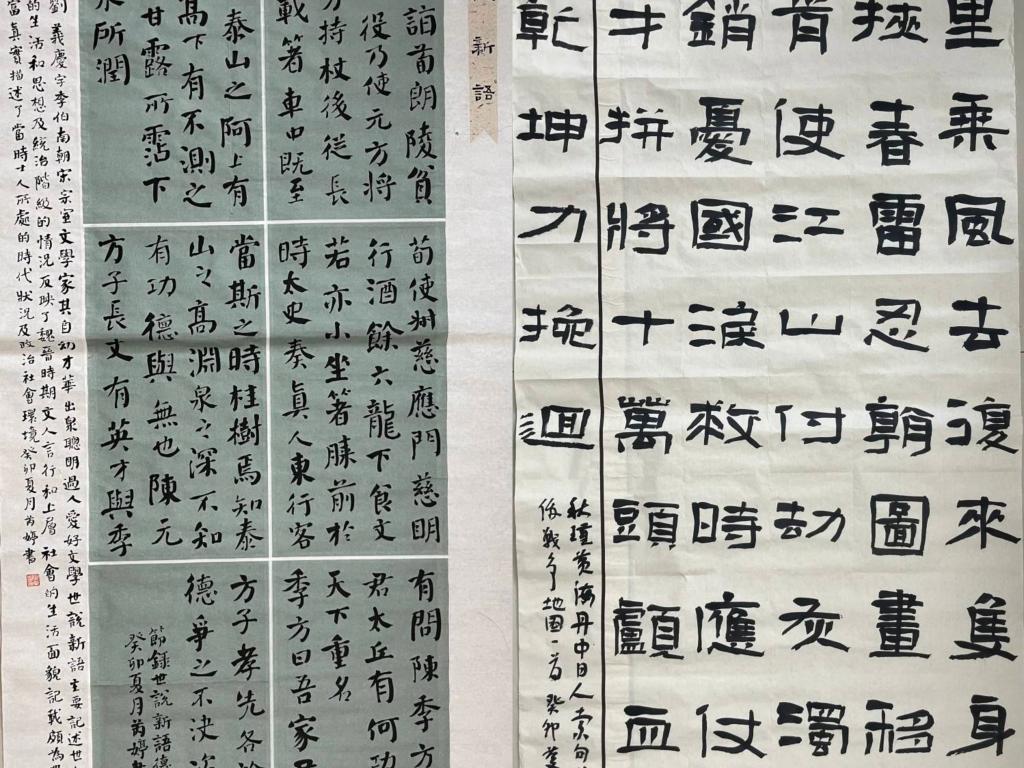 里乘風去復來隻身
挾春雷忍看圖畫移
肯使江山付劫灰濁
銷憂國淚救時應仗
才拼將十萬頭顱血
乾坤力挽迴
秋瑾黃海舟中日人索句
俄戰爭地圖一首 癸卯
新語
詣荀朗陵貧
役乃使元方將
方持杖後從長
載著車中既至
泰山之阿上有
高下有不測之
甘露所霑下
泉所潤
荀使叔慈應門慈明
行酒餘六龍下食文
若亦小坐著膝前於
時太史奏真人東行客
當斯之時桂樹焉知泰
山之高淵泉之深不知
有功德與無也陳元
方子長文有英才與季
有問陳季方
君太丘有何功
天下重名
季方曰吾家君
方子孝先各論
德爭之不決咨
節錄世說新語德
癸卯夏月芮婷書
劉義慶字季伯南朝宋宗室文學家其自幼才華出衆聰明過人愛好文學世說新語主要記述世
的生活和思想及統治階級的情況反映了魏晉時期文人言行和上層社會的生活面貌記載頗為
當真實描述了當時士人所處的時代狀況及政治社會環境癸卯夏月芮婷書